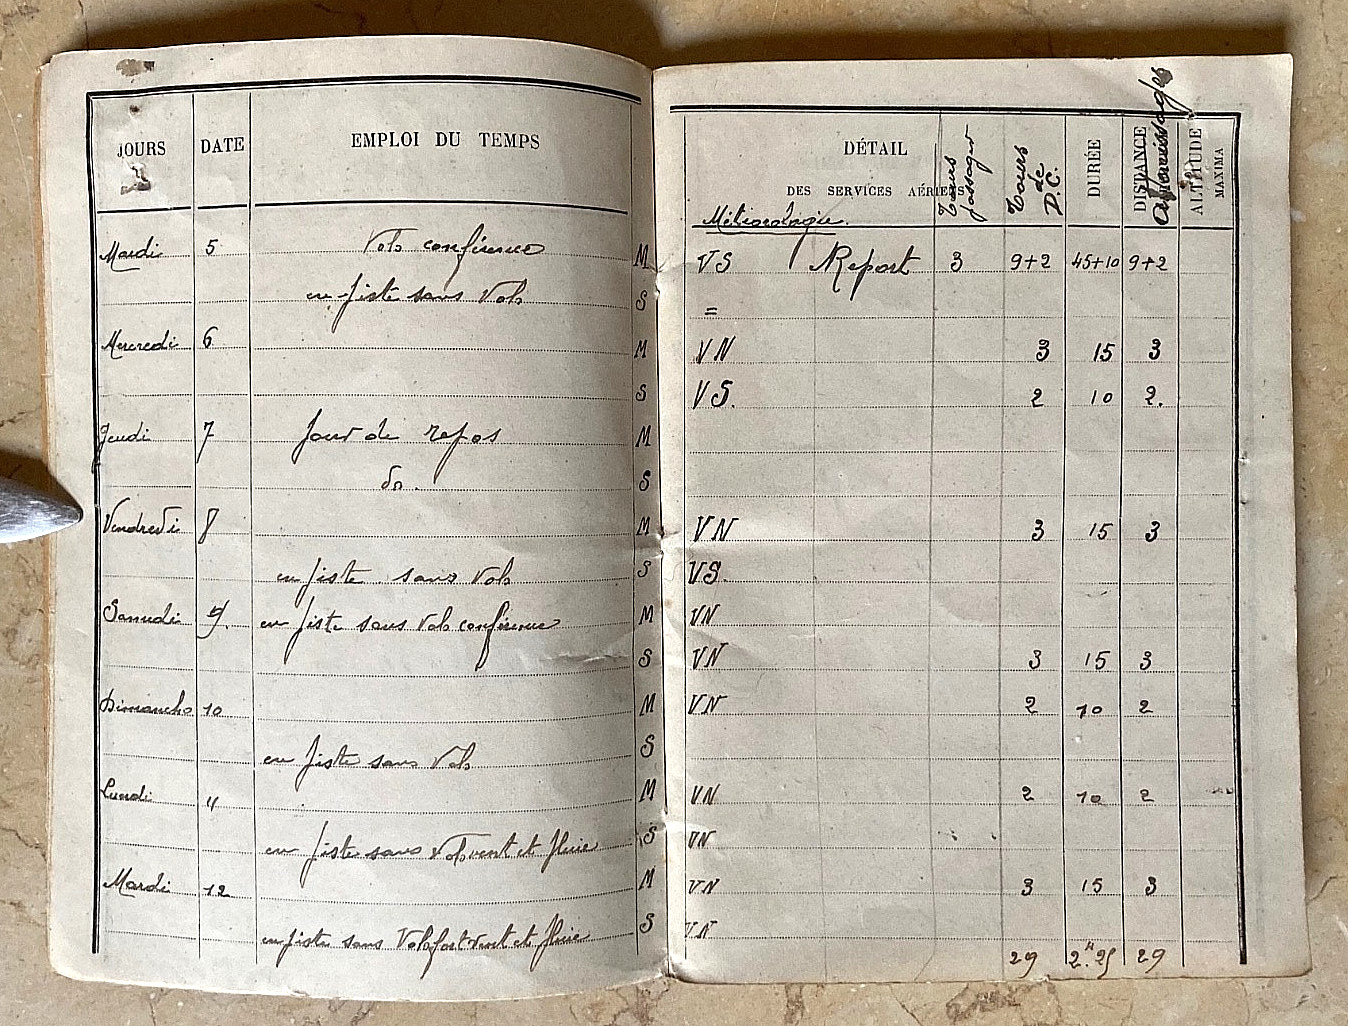 JOURS DATE EMPLOI DU TEMPS
Mardi 5 Vols conférence M
en piste sans Vols S
Mercredi 6 M
S
Jeudi 7 Jour de repos M
do. S
Vendredi 8 M
en piste sans Vols S
Samedi 9. en piste sans Vols conférence M
S
Dimanche 10 M
en piste sans Vols S
Lundi 11 M
en piste sans Vols vent et pluie S
Mardi 12 M
en piste sans Vols fort vent et pluie S
DÉTAIL DES SERVICES AÉRIENS Tours passager Tours de D.C. DURÉE DISTANCE Atterrissages ALTITUDE MAXIMA
Météorologie.
VS Report 3 9+2 45+10 9+2
=
VN 3 15 3
VS. 2 10 2.
VN 3 15 3
VS.
VN
VN 3 15 3
VN 2 10 2
VN 2 10 2
VN
VN 3 15 3
VN
29 2.H 25 29